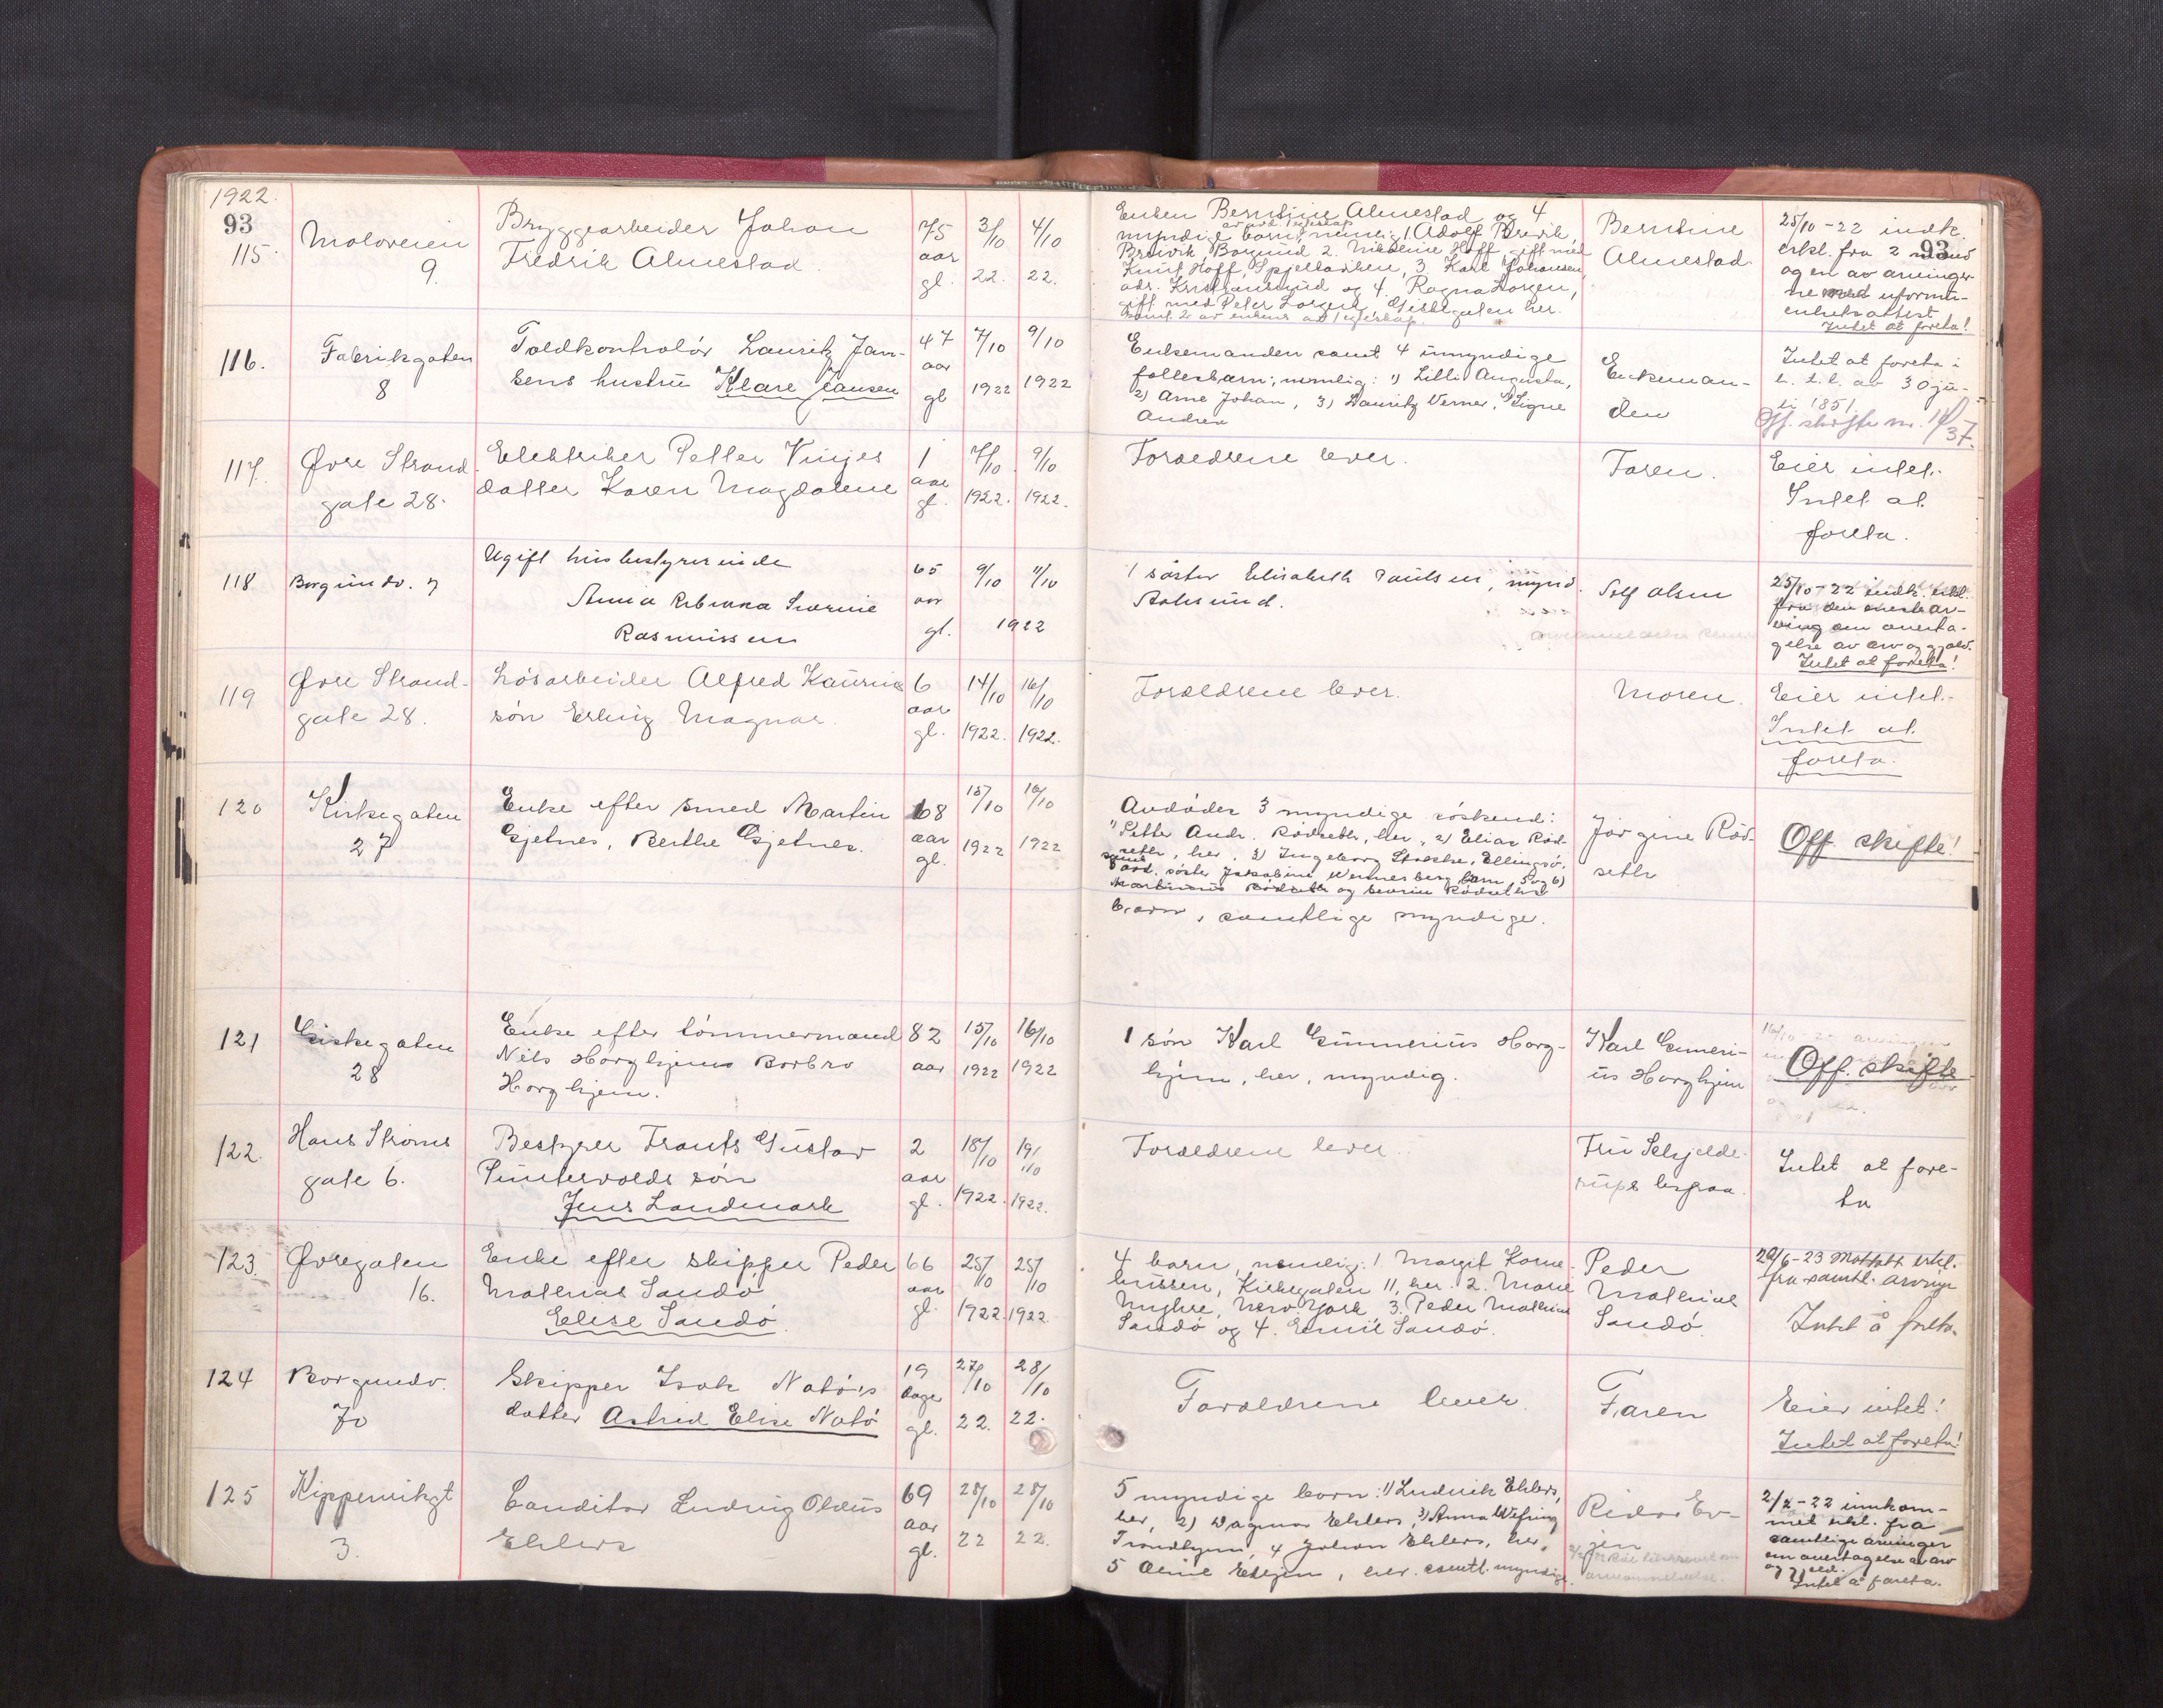 1922.
93
93
115.
Moloveien
9.
Bryggearbeider Johan
Fredrik Almestad
75
aar
gl.
3/10
22.
4/10
22.
Enken Berntine Almestad og 4
myndige barn, nemlig 1. Adolf Brevik,
Breivik, Borgund 2. Nikoline Hoff, gift med
Knut Hoff, Spjelkaviken, 3. Karl Johansen,
adr. Kristiansund og 4. Ragna Lorgen,
gift med Peter Lorgen, Giskegaten her.
Berntine
Almestad
25/10-22 indk.
erkl. fra 2 mænd
og en av arvinger-
ne uformu-
enhetsattest
Intet at foreta!
116.
Fabrikgaten
8
Toldkontrolör Lauritz Jan-
sens hustru Klare Jansen
47
aar
gl
7/10
1922
9/10
1922
Enkemanden samt 4 umyndige
fællesbarn; nemlig: 1) Lilli Augusta,
2) Arne Johan, 3) Lauritz Verner, 4) Signe
Andrea
Enkeman-
den
Intet at foreta i
h. t. l. av 30 ju-
li 1851.
Off. skifte nr. 11/37.
117.
Øvre Strand-
gate 28.
Elektriker Petter Vinjes
datter Karen Magdalene
1
aar
gl.
7/10
1922.
9/10
1922.
Forældrene lever.
Faren.
Eier intet.
Intet at
foreta.
118
Borgundv. 7
Ugift husbestyrerinde
Anna Rebekka Severine
Rasmussen
65
aar
gl.
9/10
11/10
1922
1 söster Elisabeth Paulsen, mynd.
Aalesund.
Solf Olsen
25/10-22 indk. erkl.
fra den eneste ar-
ving om overta-
gelse av arv og gjæld.
Intet at foreta!
119
Øvre Strand-
gate 28.
Lösarbeider Alfred Kaurins
sön Erling Magnar.
6
aar
gl.
14/10
1922.
16/10
1922.
Forældrene lever.
Moren.
Eier intet.
Intet at
foreta.
120
Kirkegaten
27
Enke efter smed Martin
Gjetnes, Berthe Gjetnes.
68
aar
gl.
15/10
1922
16/10
1922
Avdödes 3 myndige söskend:
1) Petter Andr. Rödseth, her, 2) Elias Röd-
seth, her, 3) Ingeborg Stokke, Ellingsö,
samt
avd. söster Jakobine Wennersberg barn, 5 og 6)
Martinus Rödseth og Severin Rödseths
barn, samtlige myndige.
Jörgine Röd-
seth
Off. skifte!
121
Giskegaten
28
Enke efter tömmermand
Nils Horghjems Borbro
Horghjem.
82
aar
15/10
1922
16/10
1922
1 sön Karl Gunnerius Horg-
hjem, her, myndig.
Karl Gunneri-
us Horghjem
Off. skifte
122.
Hans Ströms
gate 6.
Bestyrer Frants Gustav
Puntervolds sön
Jens Landmark
2
aar
gl.
18/10
1922.
19/10
1922.
Forældrene lever.
Fru Schjelde-
rups bespaa.
Intet at fore-
ta
123.
Øvregaten
16.
Enke efter skipper Peder
Mathias Sandö
Elise Sandö.
66
aar
gl.
25/10
1922.
25/10
1922
4 barn, nemlig: 1. Margit Korne-
liussen, Kirkegaten 11, her. 2. Marie
Myhre, New York 3. Peder Mathias
Sandö og 4. Emil Sandö.
Peder
Mathias
Sandö.
29/6-23 Mottatt erkl.
fra samtl. arvinger
Intet å foreta.
124
Borgundv.
70
Skipper Isak Notö's
datter Astrid Elise Notö
19
dage
gl.
27/10
22.
28/10
22.
Forældrene lever.
Faren
Eier intet!
Intet at foreta!
125
Kippervikgt
3.
Conditor Ludvig Olaus
Ehlers
69
aar
gl.
28/10
22
28/10
22.
5 myndige barn: 1) Ludvik Ehlers,
her, 2) Dagmar Ehlers, 3) Anna Wefring
Trondhjem, 4 Johan Ehlers, her,
5 Oline Evjen, her. samtl. myndige.
Reidar Ev-
jen
2/2-22 innkom-
met erkl. fra
samtlige arvinger
om overtagelse av arv
og gjeld.
Intet å foreta.